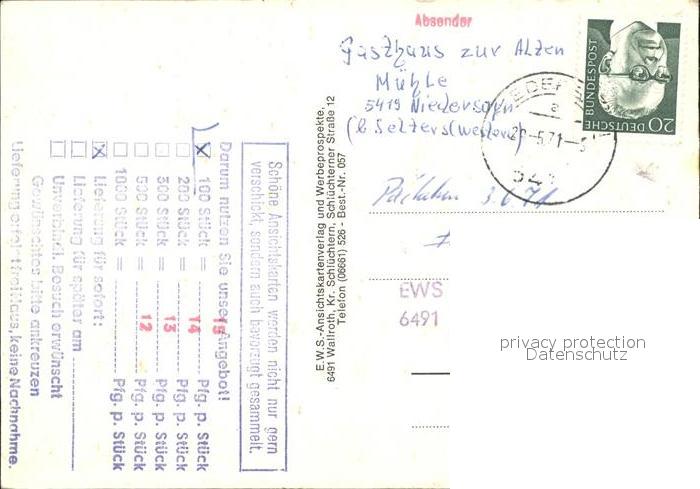 Absender
Gasthaus zur Alten
Mühle
5419 Niedersayn
(b. Selters (Westerw)
DEUTSCHE BUNDESPOST
20
-5.71-
541
3.6.71
EWS
6491
privacy protection
Datenschutz
E.W.S.-Ansichtskartenverlag und Werbeprospekte,
6491 Wallroth, Kr. Schlüchtern, Schlüchterner Straße 12
Telefon (06661) 526 - Best.-Nr. 057
Schöne Ansichtskarten werden nicht nur gern
verschickt, sondern auch bevorzugt gesammelt.
Darum nutzen Sie unser Angebot!
100 Stück = 15 Pfg. p. Stück
200 Stück = 14 Pfg. p. Stück
300 Stück = 13 Pfg. p. Stück
500 Stück = 12 Pfg. p. Stück
1000 Stück = Pfg. p. Stück
Lieferung für sofort:
Lieferung für später am
Unverbindl. Besuch erwünscht
Gewünschtes bitte ankreuzen
Lieferung erfolgt frei Haus, keine Nachnahme.